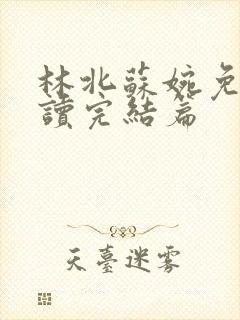 林北蘇婉免
讀完結篇
天臺迷霧